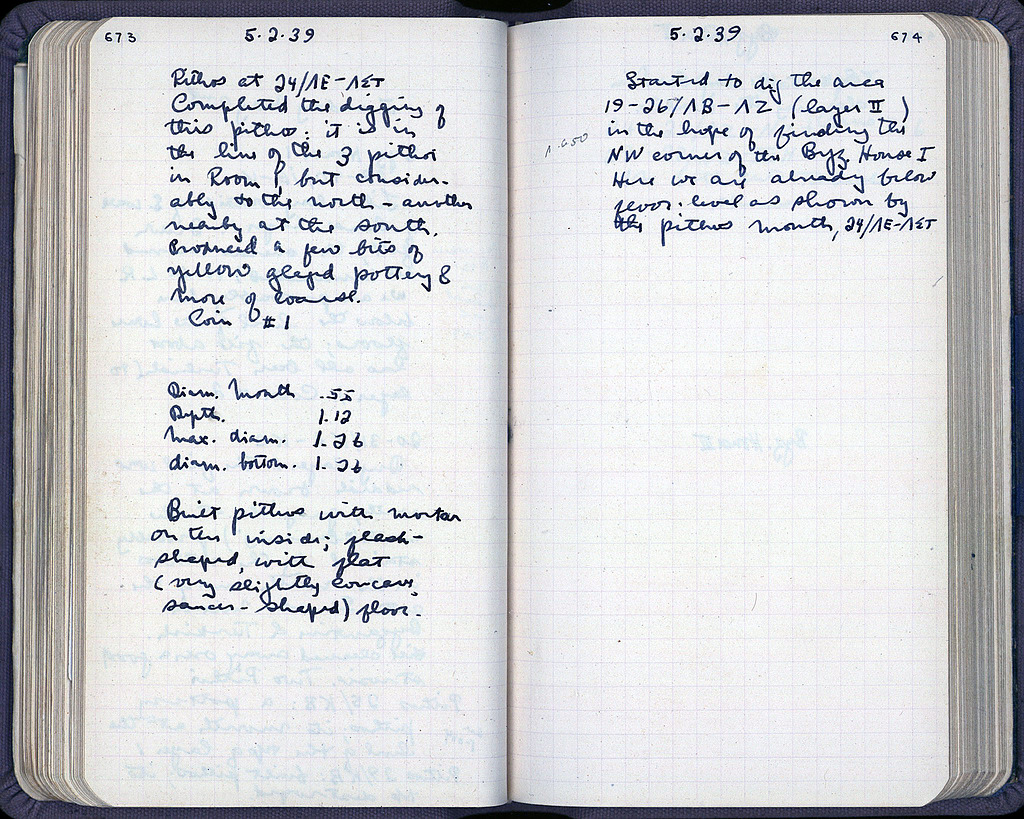 673
5·2·39
Pithos at 24/ΛΕ-ΛΣΤ
Completed the digging of
this pithos: it is in
the line of the 3 pithoi
in Room 1, but consider-
ably to the north – another
nearby at the south.
Produced a few bits of
yellow glazed pottery &
more of coarse.
Coin #1
Diam. mouth .55
Depth. 1.12
max. diam. 1.26
diam. bottom. 1.26
Built pithos with mortar
on the inside; flask-
shaped, with flat
(very slightly concave,
saucer-shaped) floor.
5·2·39
674
Started to dig the area
19-26/ΛΒ-ΛΖ (layer II)
in the hope of finding the
NW corner of the Byz. House I
Here we are already below
floor level as shown by
the pithos mouth, 24/ΛΕ-ΛΣΤ